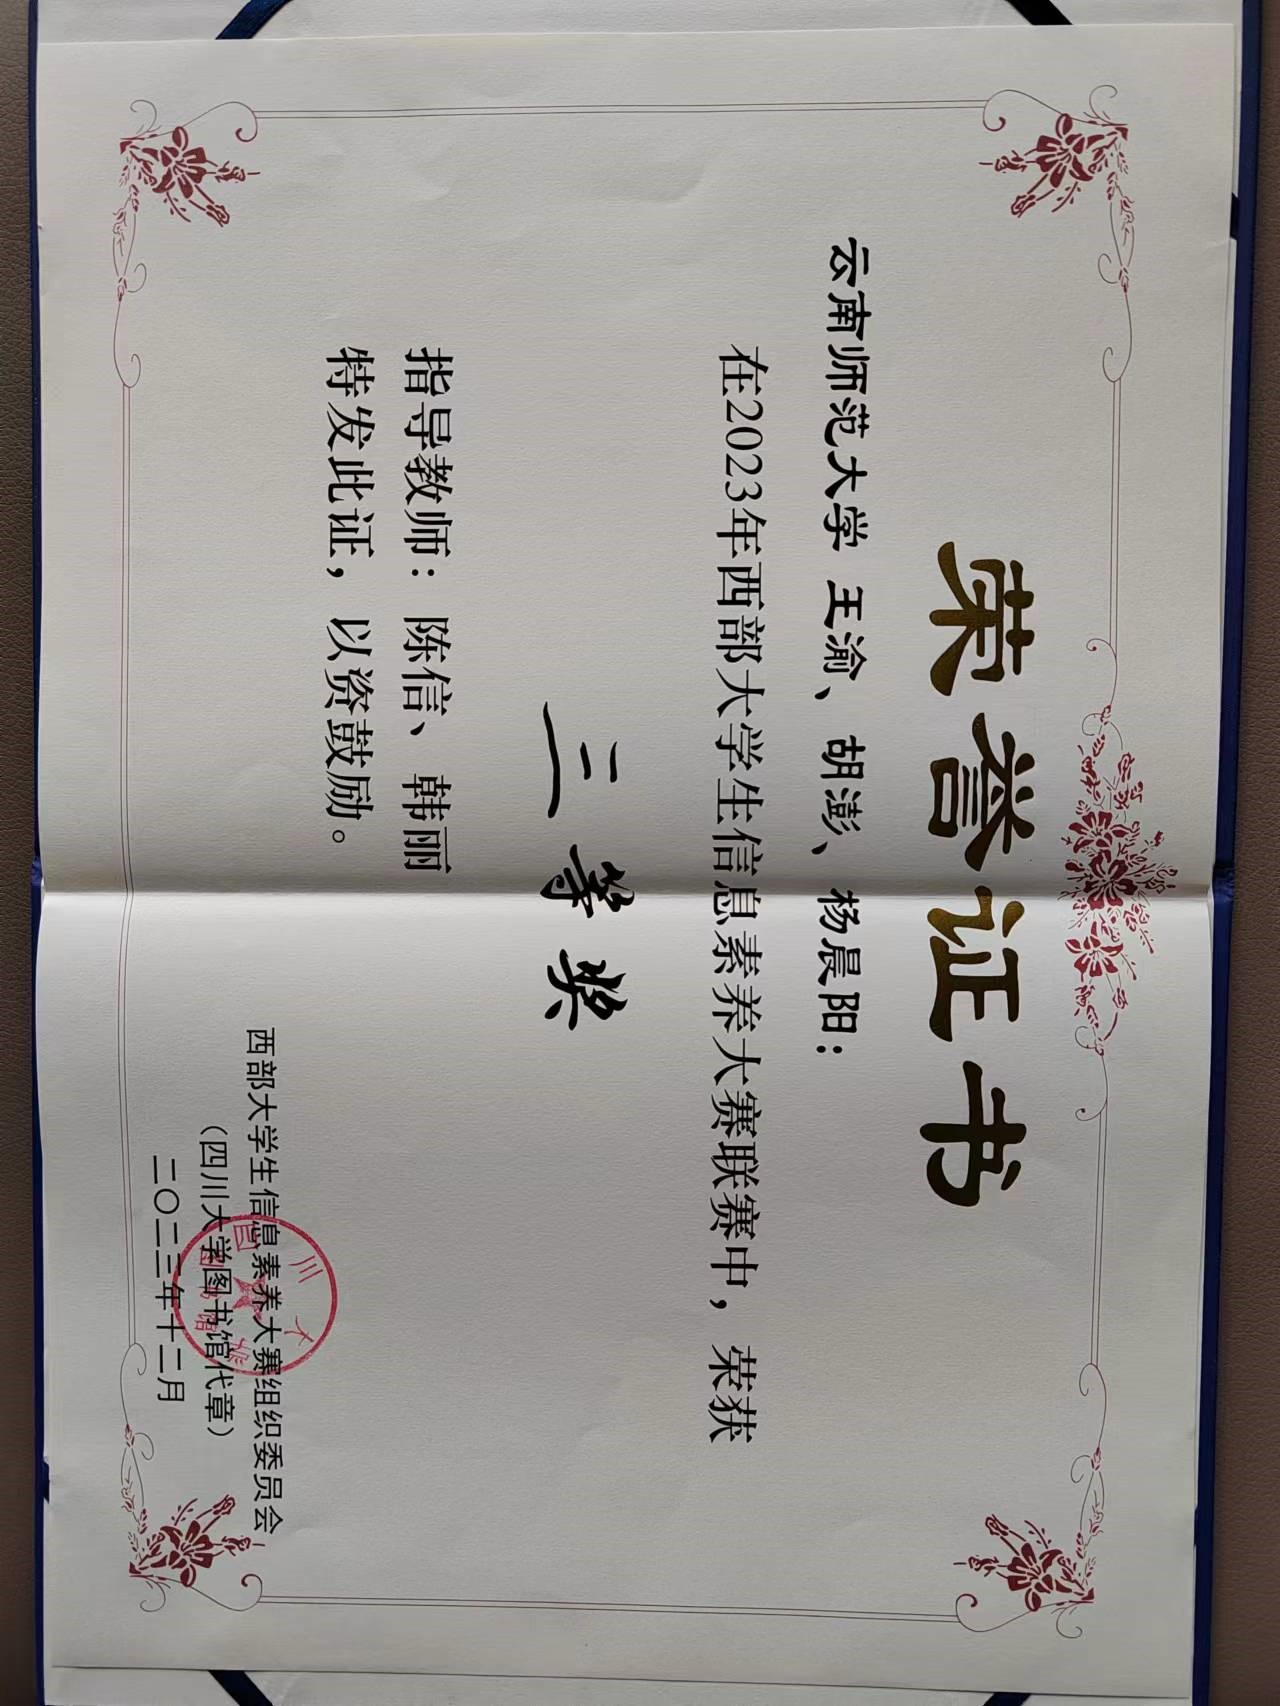 荣誉证书
云南师范大学 王渝、胡澎、杨晨阳：
在2023年西部大学生信息素养大赛联赛中，荣获
三等奖
指导教师：陈信、韩丽
特发此证，以资鼓励。
西部大学生信息素养大赛组织委员会
（四川大学图书馆代章）
二〇二三年十二月